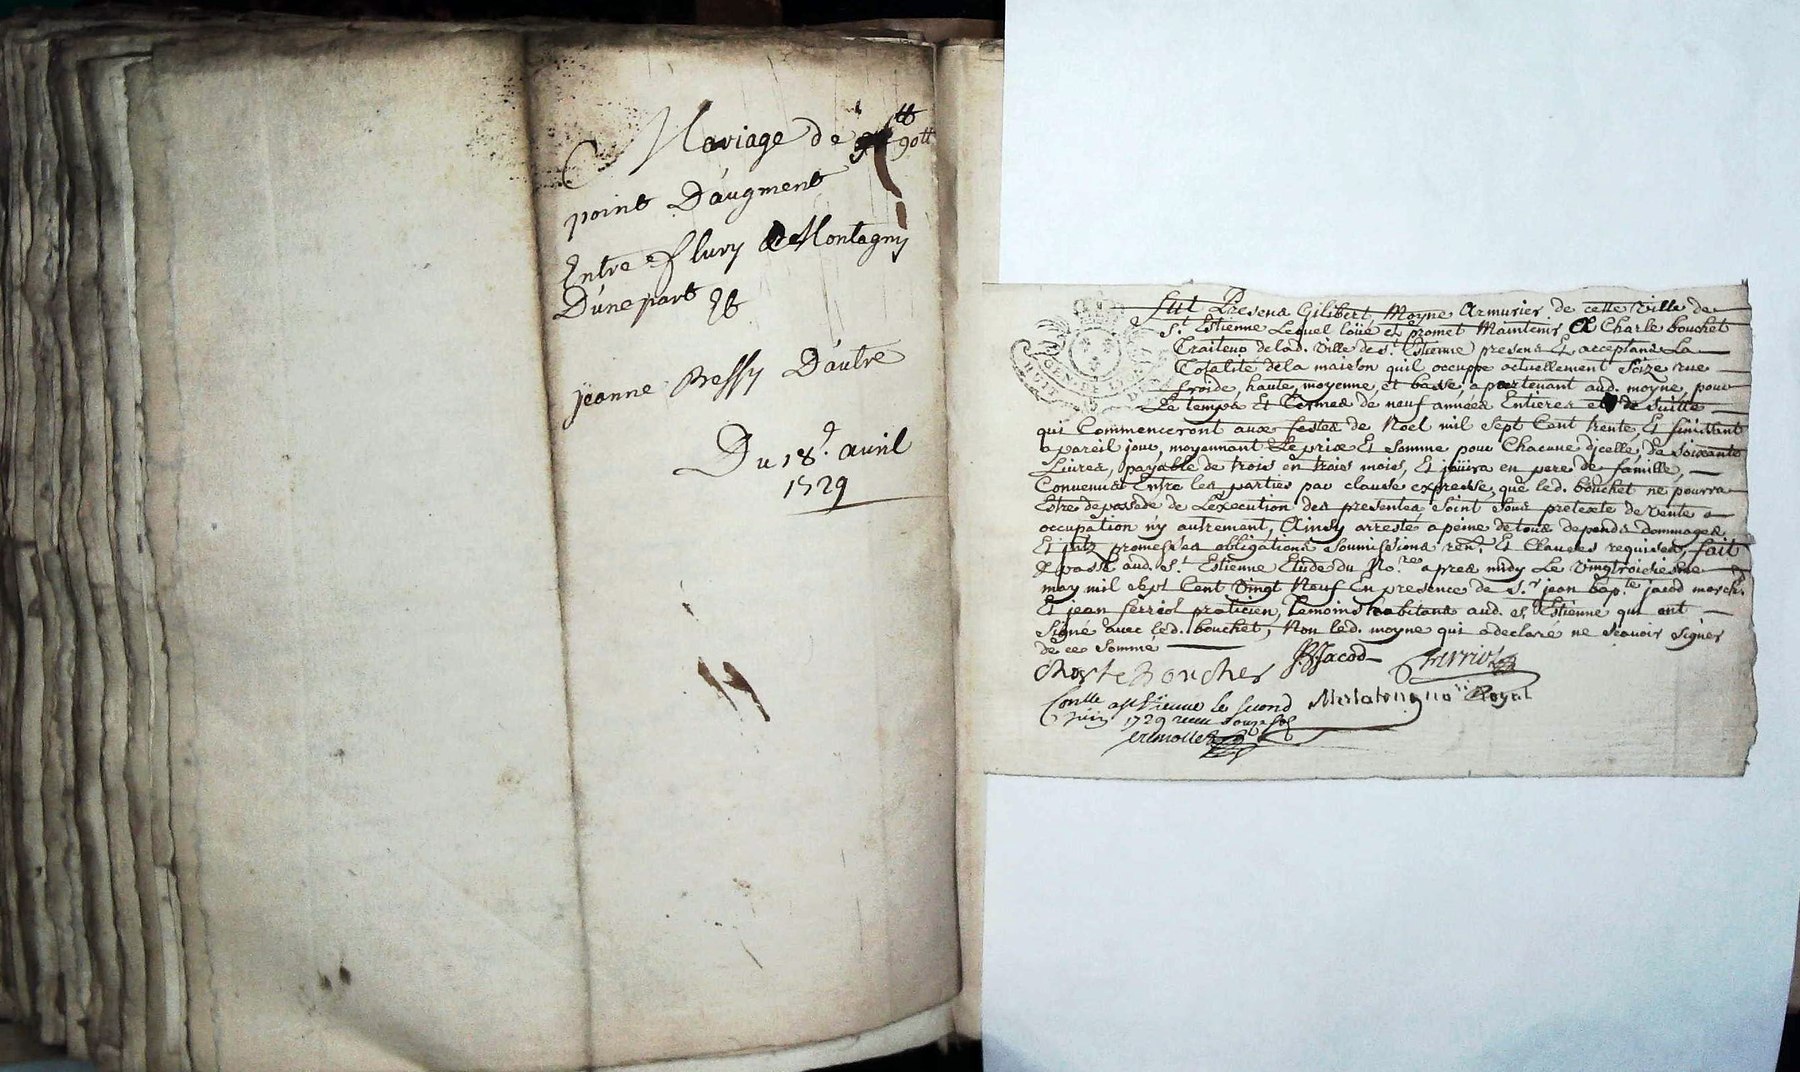 Mariage de 90tt
point D'augment
Entre flury de Montagny
D'une part Et
jeanne Bessy D'autre
Du 18e. avril
1729
fut Present Gilibert Moyne Armurier de cette ville de
St. Estienne Lequel loüe et promet Maintenir A Charle bouchet
Traiteur de lad. ville de St. Estienne present Et acceptant La
Totalité de la maison quil occuppe actuellement Seize rue
froide, haute, moyenne, et basse, apartenant aud. moyne, pour
Le temps Et termes de neuf années Entieres et de Suitte
qui Commenceront aux festes de Noel mil sept Cent trente, Et finiront
a pareil jour, moyennant Le prix Et Somme pour Chacune d'jcelle, de soixante
Livres, payable de trois en trois mois, Et joüira en pere de famille,
Convenu Entre les parties par clause expresse, que led. bouchet ne pourra
Estre depossedé de L'execution des presentes, Soint Sous pretexte de vente
occupation n'y autrement, Ainsy arresté a peine de tous depends dommages
Et promesses obligations soumissions ren.on Et Clauses requises, fait
& passé aud. St. Estienne Etude du No.re apres midy Le vingtroisiesme
may mil sept Cent Vingt Neuf En presence de Sr. jean bap.te jacod march.
Et jean ferriol praticien, temoins habitans aud. St. Estienne qui ont
signé avec led. bouchet, Non led. moyne qui a declaré ne scavoir signer
de ce Sommé
Charle Bouchet JBJacod ferriol
Conlle a St Etienne le second no.re Royal
juin 1729 receu douze sols